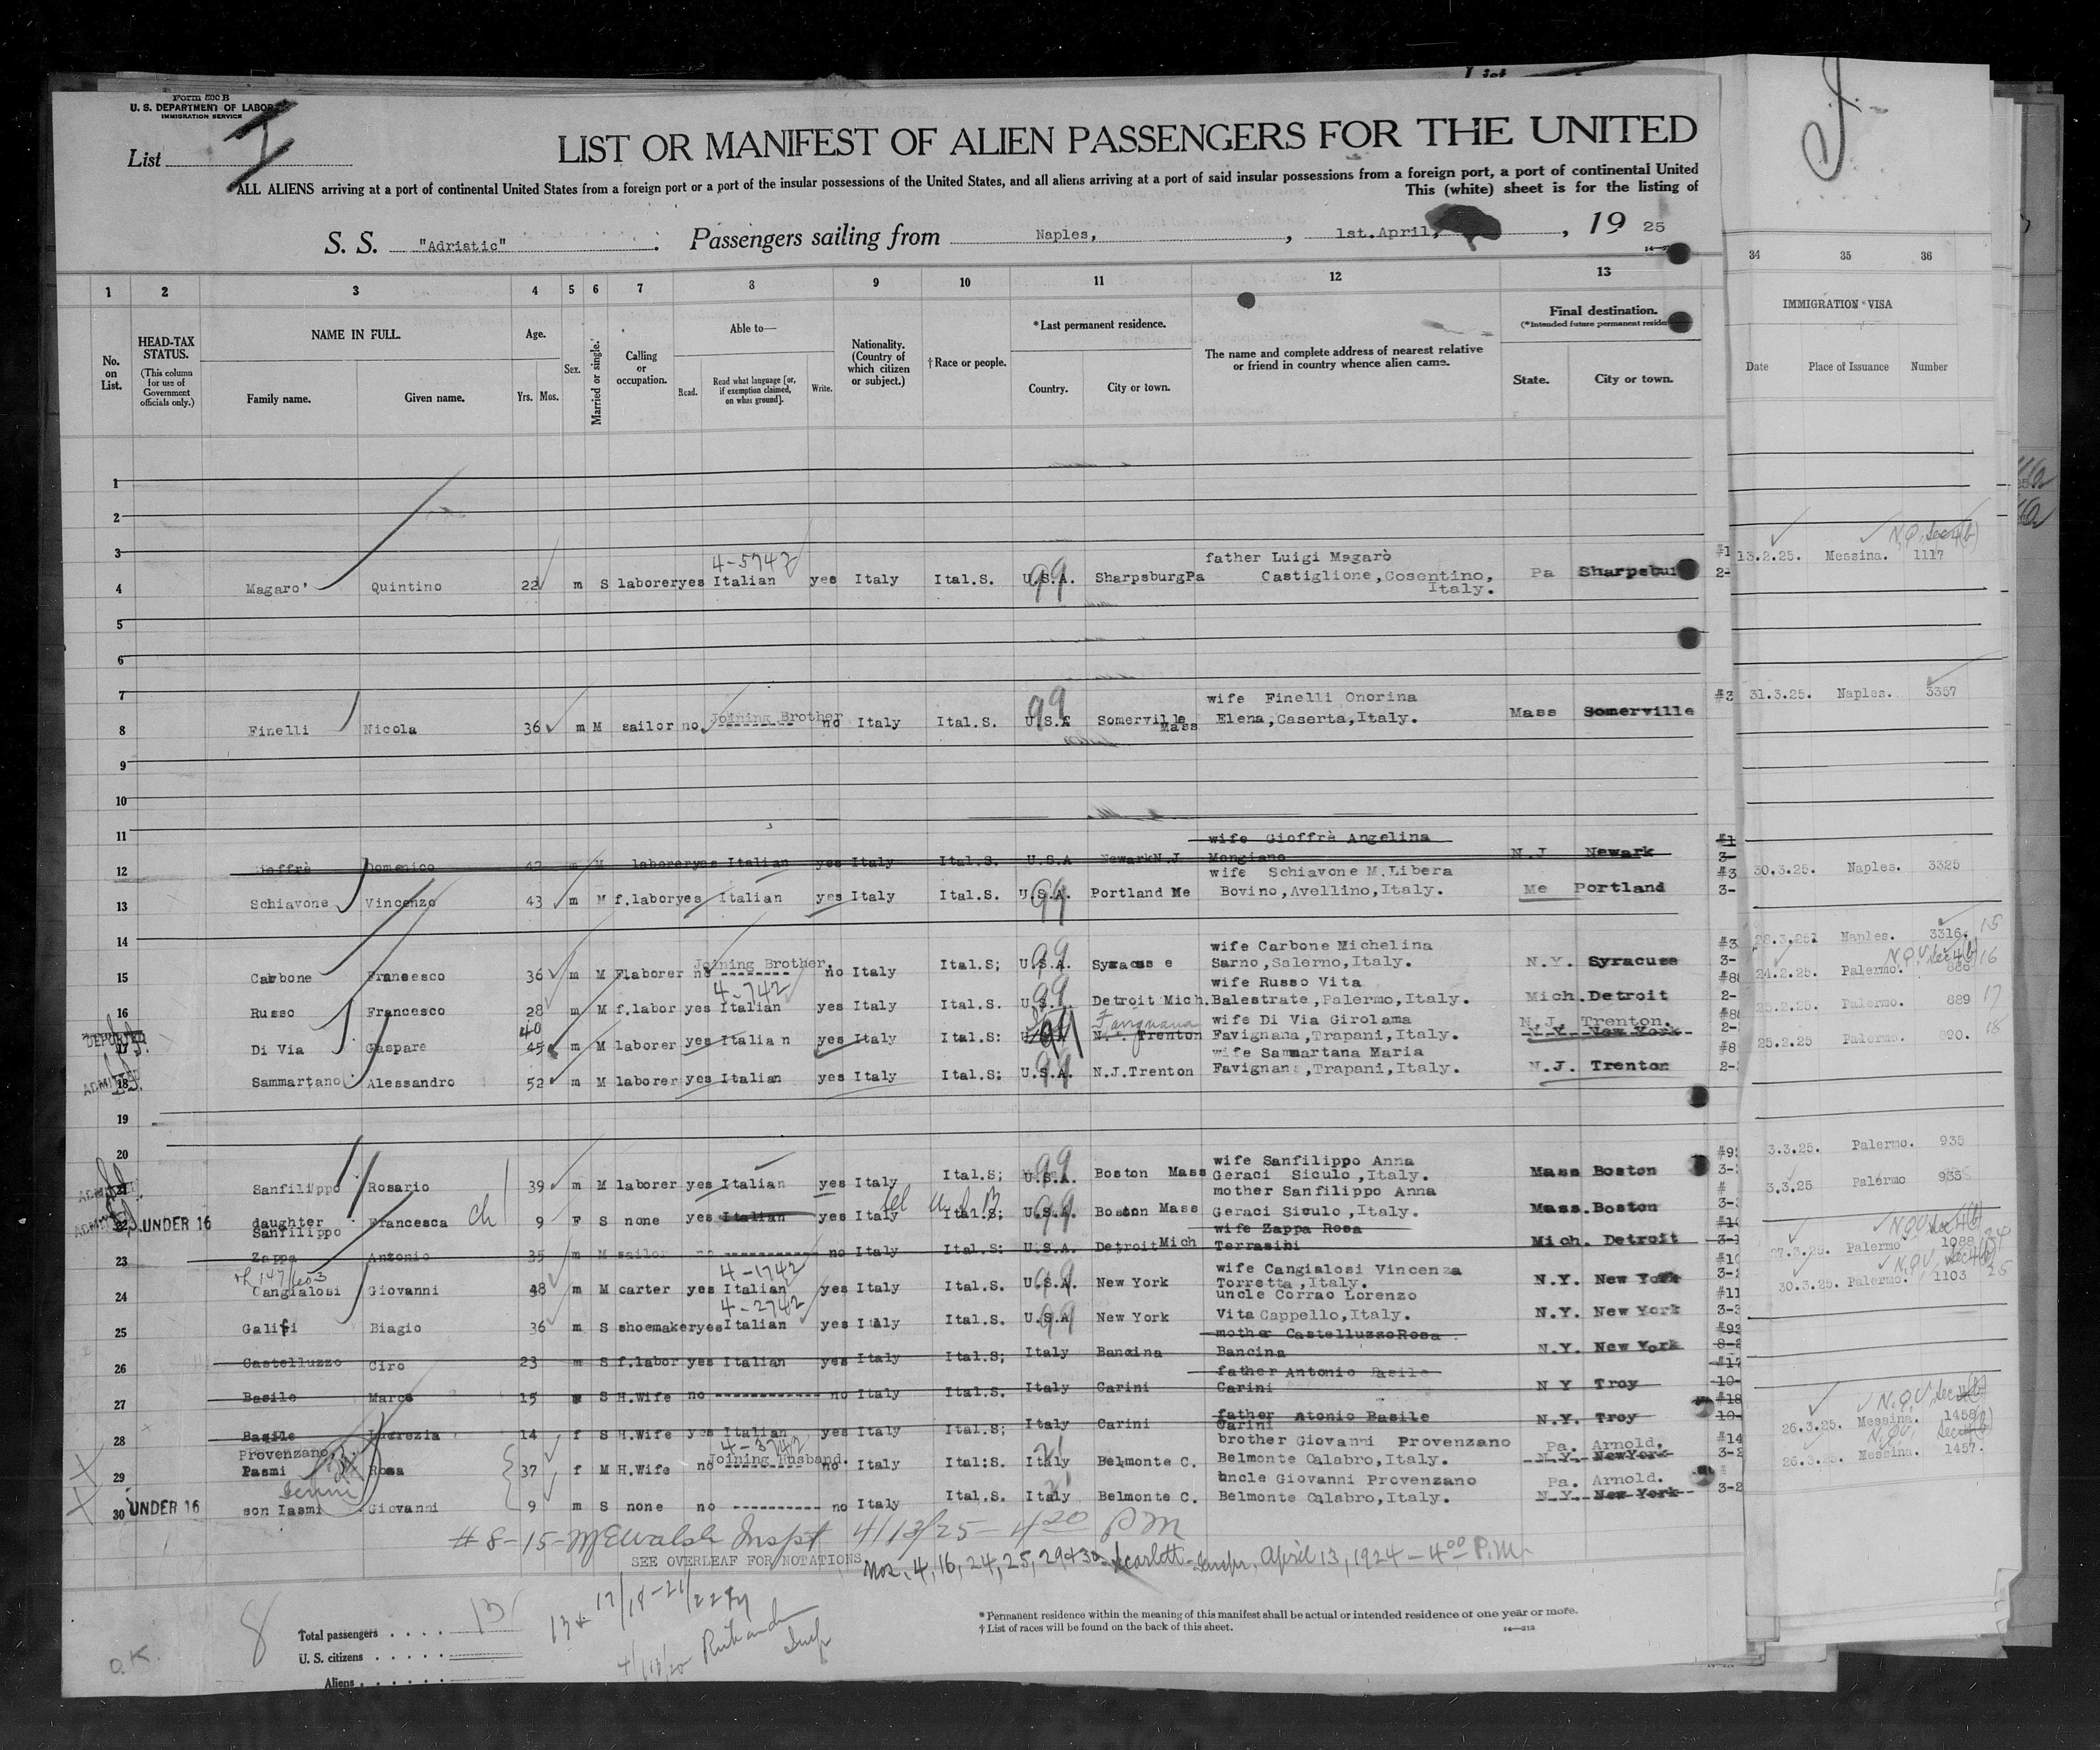 Form 500 B
U. S. DEPARTMENT OF LABOR
IMMIGRATION SERVICE
List I
LIST OR MANIFEST OF ALIEN PASSENGERS FOR THE UNITED
ALL ALIENS arriving at a port of continental United States from a foreign port or a port of the insular possessions of the United States, and all aliens arriving at a port of said insular possessions from a foreign port, a port of continental United
This (white) sheet is for the listing of
S. S. "Adriatic" . Passengers sailing from Naples, , 1st.April, , 19 25
1 2 3 4 5 6 7 8 9 10 11 12 13 34 35 36
No. on List.
HEAD-TAX STATUS.
(This column for use of Government officials only.)
NAME IN FULL.
Family name. Given name.
Age.
Yrs. Mos.
Sex.
Married or single.
Calling or occupation.
Able to—
Read. Read what language [or, if exemption claimed, on what ground]. Write.
Nationality. (Country of which citizen or subject.)
†Race or people.
*Last permanent residence.
Country. City or town.
The name and complete address of nearest relative or friend in country whence alien came.
Final destination.
(*Intended future permanent reside
State. City or town.
IMMIGRATION VISA
Date Place of Issuance Number
1
2
3
4-5742 father Luigi Magarò
4 Magaro' Quintino 22 m S laborer yes Italian yes Italy Ital.S. U.S.A. 99 Sharpsburg Pa Castiglione,Cosentino, Italy. Pa Sharpsbur 13.2.25. Messina. 1117
5
6
7
wife Finelli Onorina
8 Finelli Nicola 36 m M sailor no Joining Brother no Italy Ital.S. U.S.A 99 Somerville Mass Elena,Caserta,Italy. Mass Somerville 31.3.25. Naples. 3357
9
10
11
wife Gioffrè Angelina
12 Gioffrè Domenico 42 m M laborer yes Italian yes Italy Ital.S. U.S.A Newark N.J Mongiano N.J Newark
wife Schiavone M.Libera
13 Schiavone Vincenzo 43 m M f.labor yes Italian yes Italy Ital.S. U.S.A. 99 Portland Me Bovino,Avellino,Italy. Me Portland 30.3.25. Naples. 3325
14
wife Carbone Michelina
15 Carbone Francesco 36 m M F.laborer no Joining Brother. no Italy Ital.S; U.S.A. 99 Syracuse Sarno,Salerno,Italy. N.Y. Syracuse 28.3.25. Naples. 3316. 15
4-742 wife Russo Vita
16 Russo Francesco 28 m M f.labor yes Italian yes Italy Ital.S. 99 Detroit Mich. Balestrate,Palermo,Italy. Mich. Detroit 24.2.25. Palermo. 886 16
DEPORTED 40 wife Di Via Girolama N.J. Trenton.
17 Di Via Gaspare 45 m M laborer yes Italian yes Italy Ital.S: Trenton Favignana,Trapani,Italy. N.Y. New York 25.2.25. Palermo. 889 17
wife Sammartana Maria
ADMITTED 18 Sammartano Alessandro 52 m M laborer yes Italian yes Italy Ital.S: U.S.A. 99 N.J.Trenton Favignana,Trapani,Italy. N.J. Trenton 25.2.25 Palermo. 890. 18
19
20
wife Sanfilippo Anna
ADMITTED 21 Sanfilippo Rosario 39 m M laborer yes Italian yes Italy Ital.S; U.S.A. 99 Boston Mass Geraci Siculo,Italy. Mass Boston 3.3.25. Palermo. 935
mother Sanfilippo Anna
ADMITTED 22 UNDER 16 daughter Sanfilippo Francesca ch 9 F S none yes Italian yes Italy Ital.S; U.S.A. 99 Boston Mass Geraci Siculo,Italy. Mass. Boston 3.3.25 Palermo 935
wife Zappa Rosa
23 Zappa Antonio 35 m M sailor no no Italy Ital.S: U.S.A. Detroit Mich Terrasini Mich. Detroit
4-1742 wife Cangialosi Vincenza
24 Cangialosi Giovanni 48 m M carter yes Italian yes Italy Ital.S. U.S.A. New York Torretta,Italy. N.Y. New York 27.3.25. Palermo 1088 24
4-2742 uncle Corrao Lorenzo
25 Galifi Biagio 36 m S shoemaker yes Italian yes Italy Ital.S. U.S.A 99 New York Vita Cappello,Italy. N.Y. New York 30.3.25. Palermo. 1103 25
mother Castelluzzo Rosa
26 Castelluzzo Ciro 23 m S f.labor yes Italian yes Italy Ital.S; Italy Bancina Bancina N.Y. New York
father Antonio Basile
27 Basile Marco 15 S H.Wife no no Italy Ital.S. Italy Carini Carini N Y Troy
father Atonio Basile
28 Basile Lucrezia 14 f S H.Wife yes Italian yes Italy Ital.S; Italy Carini Carini N.Y. Troy
Provenzano 4-3742 brother Giovanni Provenzano Pa. Arnold.
29 Pasmi Rosa 37 f M H.Wife no Joining Husband. no Italy Ital:S. Italy Belmonte C. Belmonte Calabro,Italy. N.Y. New York 26.3.25. Messina. 1458
uncle Giovanni Provenzano Pa. Arnold.
30 UNDER 16 son Iasmi Giovanni 9 m S none no no Italy Ital.S. Italy Belmonte C. Belmonte Calabro,Italy. N.Y. New York 26.3.25. Messina. 1457.
#8-15-McWalsh Inspt 4/13/25- 4 20 PM
SEE OVERLEAF FOR NOTATIONS
Nos. 4, 16, 24, 25, 29+30 Scarlett - Inspr. April 13, 1924 - 4 00 P.M.
13 + 17/18-21/22
Total passengers . . . . 13
U. S. citizens . . . . .
Aliens . . . . . .
8
O.K.
* Permanent residence within the meaning of this manifest shall be actual or intended residence of one year or more.
† List of races will be found on the back of this sheet.